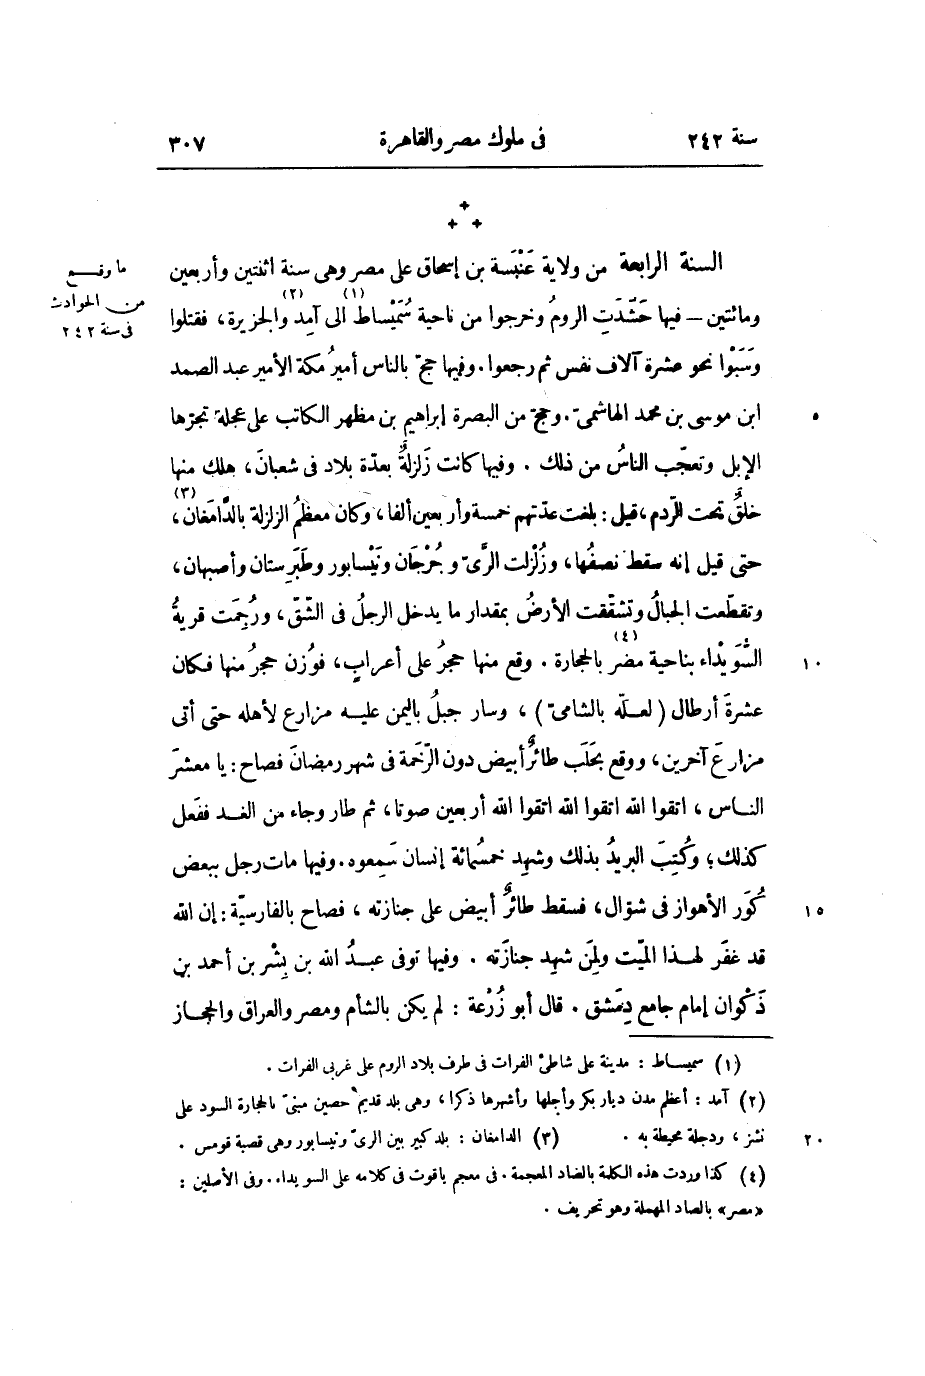 سنة ٢٤٢ فى ملوك مصر والقاهرة ٣٠٧
السنة الرابعة من ولاية عَنْبَسة بن إسحاق على مصر وهى سنة اثنتين وأربعين
ما وقع
من الحوادث
فى سنة ٢٤٢
ومائتين — فيها حَشَدَتِ الرومُ وخرجوا من ناحية سُمَيْساط (١) الى آمِد (٢) والجزيرة، فقتلوا
وَسَبَوْا نحو عشرة آلاف نفس ثم رجعوا. وفيها حجّ بالناس أميرُ مكة الأمير عبد الصمد
ابن موسى بن محمد الهاشمىّ. وحجّ من البصرة إبراهيم بن مظهر الكاتب على عجلة تجرّها ٥
الإبل وتعجّب الناسُ من ذلك. وفيها كانت زَلزلةٌ بعدّة بلاد فى شعبانَ، هلك منها
خلقٌ تحت الرّدم، قيل: بلغت عدّتهم خمسة وأربعين ألفا، وكان معظمُ الزلزلة بالدَّامَغان (٣)،
حتى قيل إنه سقط نصفُها، وزُلْزلت الرَّىّ و جُرْجَان ونَيْسابور وطَبَرِستان وأصبهان،
وتقطّعت الجبالُ وتشقّقت الأرضُ بمقدار ما يدخل الرجلُ فى الشّقّ، ورُجِمَت قريةُ
السُّوَيْداء بناحية مضر (٤) بالحجارة. وقع منها حجرُ على أعراب، فوُزن حجرُ منها فكان ١٠
عشرةَ أرطال (لعلّه بالشامىّ)، وسار جبلُ باليمن عليه مزارع لأهله حتى أتى
مزارعَ آخرين، ووقع بحَلَب طائرٌ أبيض دون الرّخَمة فى شهر رمضانَ فصاح: يا معشرَ
الناس، اتقوا الله اتقوا الله اتقوا الله أربعين صوتا، ثم طار وجاء من الغد ففَعل
كذلك؛ وكُتِبَ البريدُ بذلك وشهِد خمسُمائة إنسان سَمِعوه. وفيها مات رجل ببعض
كُوَر الأهواز فى شوّال، فسقط طائرٌ أبيض على جنازته، فصاح بالفارسيّة: إن الله ١٥
قد غفَر لهذا الميّت ولِمن شهِد جنازَته. وفيها توفى عبدُ الله بن بِشْر بن أحمد بن
ذَكْوان إمام جامع دِمَشق. قال أبو زُرْعة: لم يكن بالشأم ومصر والعراق والحجاز
(١) سميساط: مدينة على شاطئ الفرات فى طرف بلاد الروم على غربى الفرات.
(٢) آمد: أعظم مدن ديار بكر وأجلها وأشهرها ذكرا، وهى بلد قديم حصين مبنىّ بالحجارة السود على
نشز، ودجلة محيطة به. (٣) الدامغان: بلد كبير بين الرىّ ونيسابور وهى قصبة قومس. ٢٠
(٤) كذا وردت هذه الكلمة بالضاد المعجمة. فى معجم ياقوت فى كلامه على السويداء.. وفى الأصلين:
«مصر» بالصاد المهملة وهو تحريف.